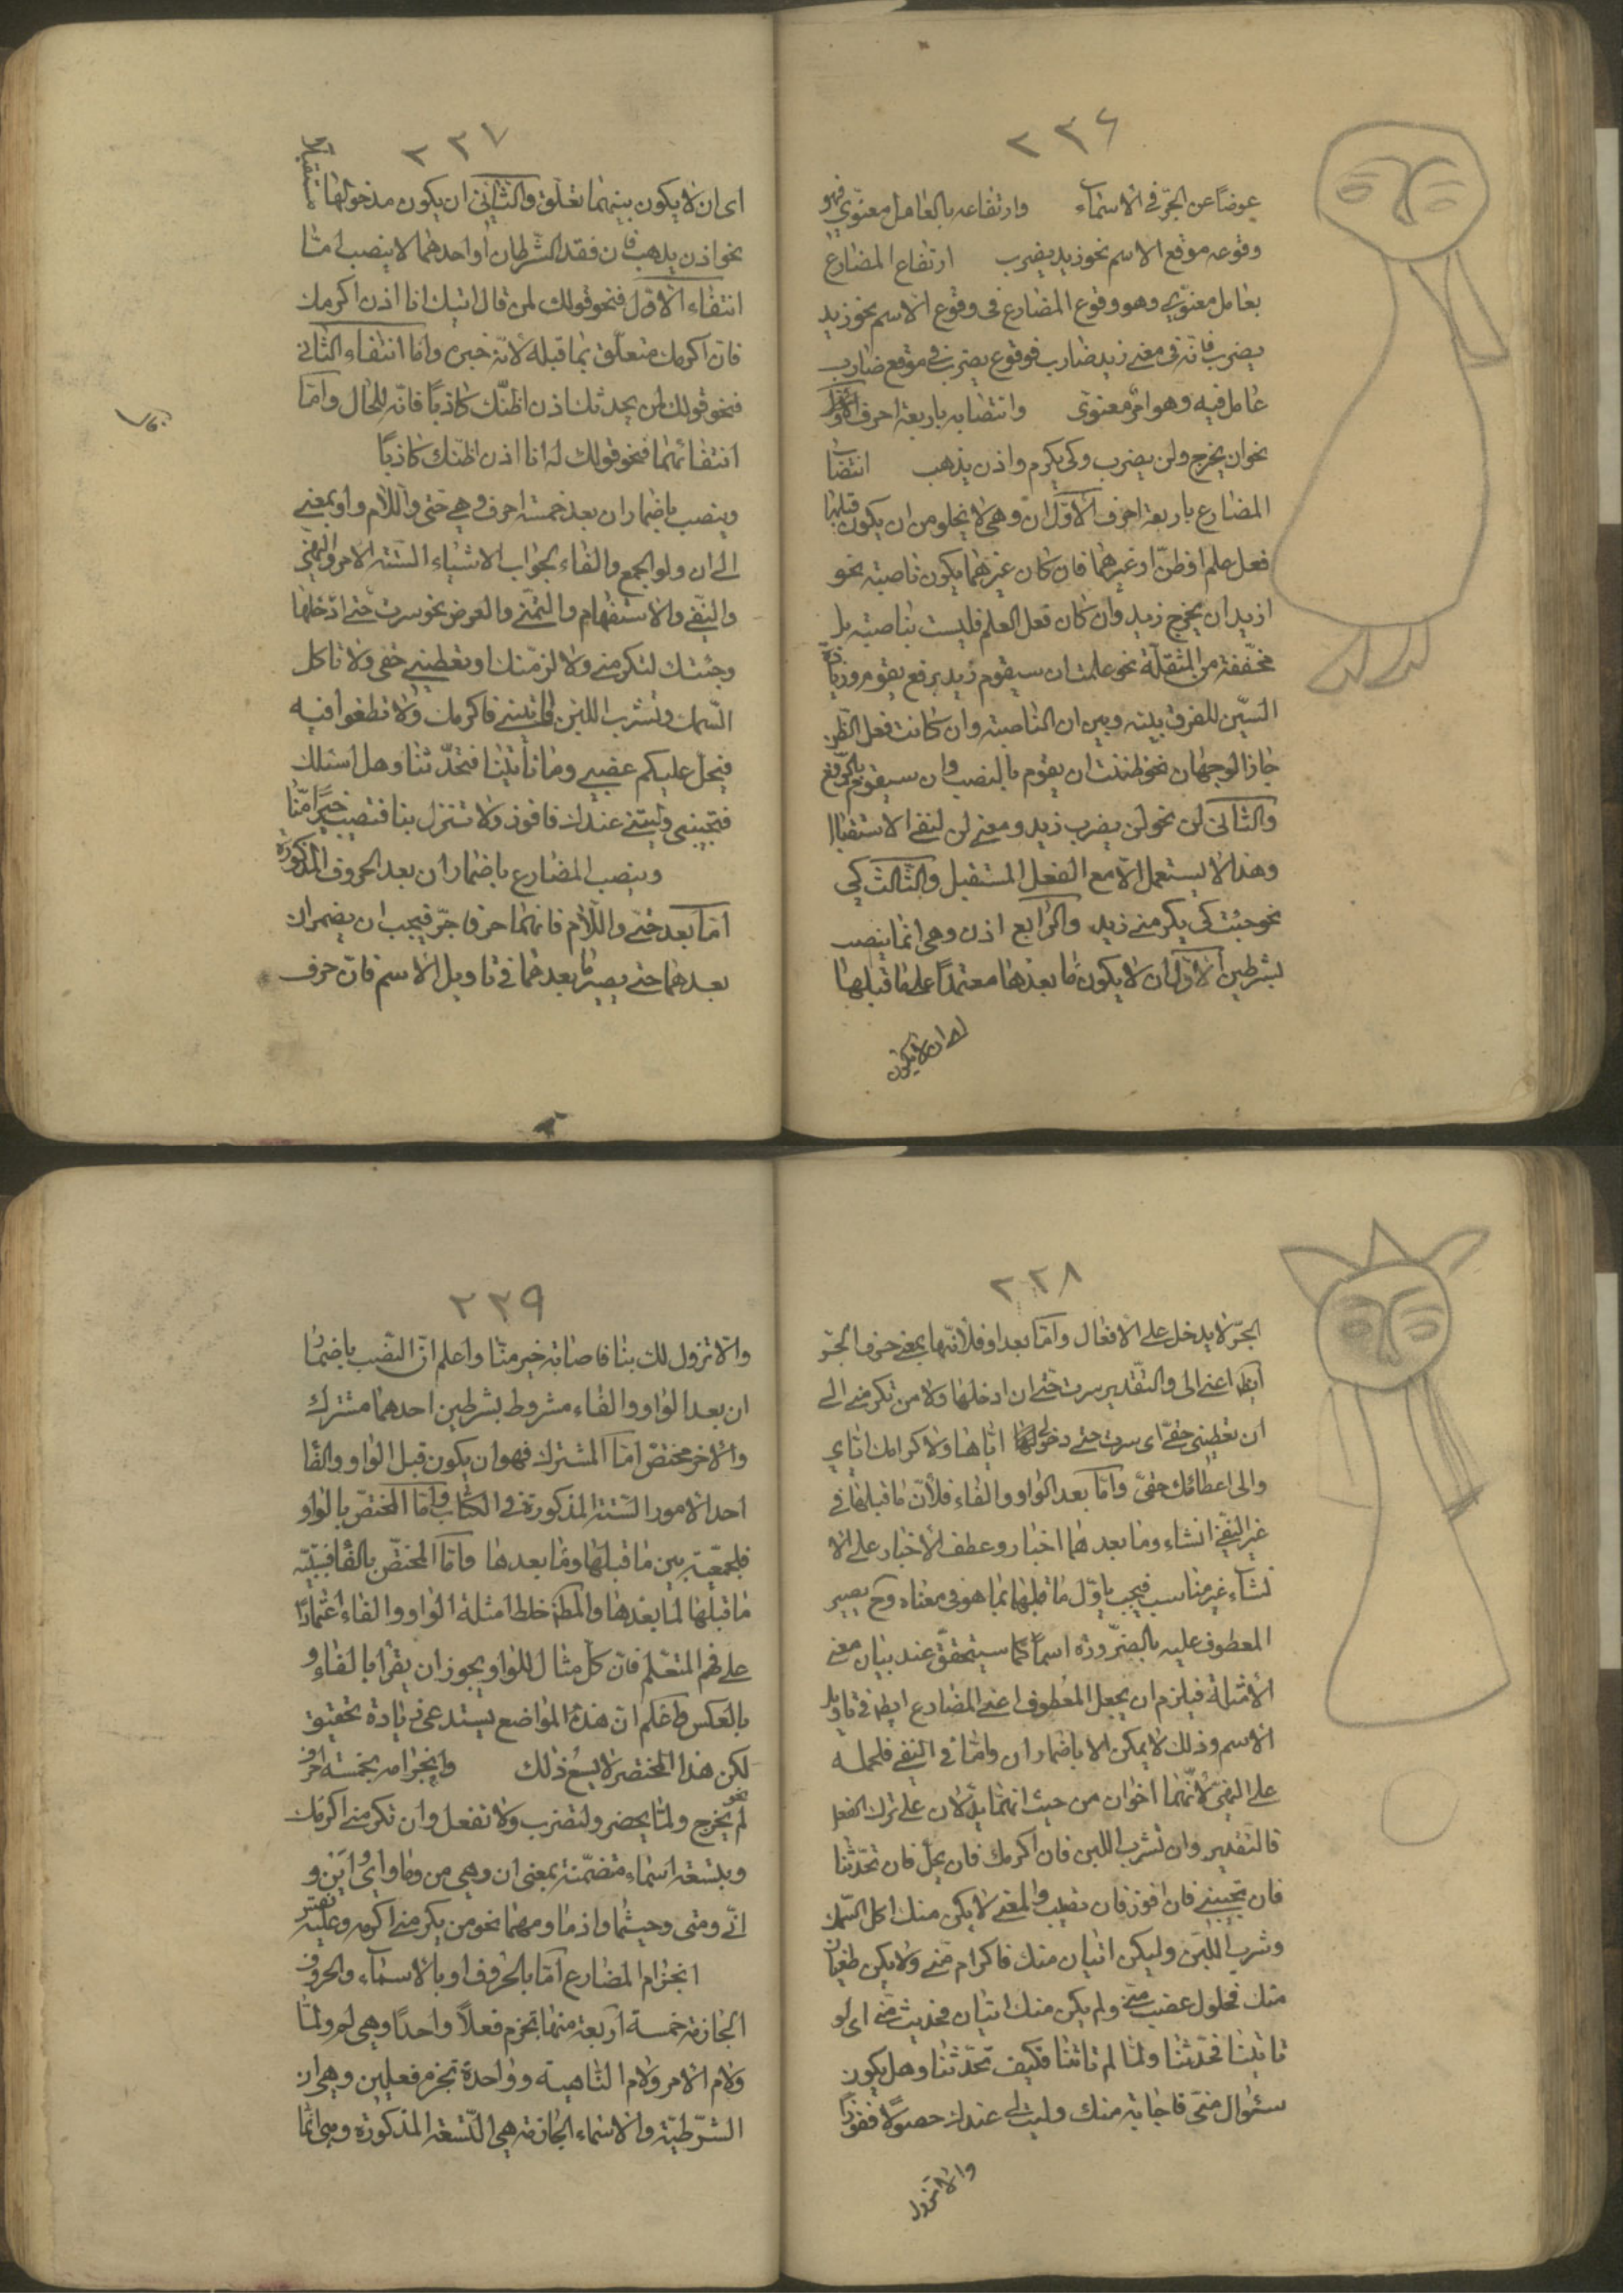 ٢٣٦
عوضًا عن الجرّ فى الاسماء وارتفاعه بالعامل معنوّي فهو
وقوعه موقع الاسم نحو زيد يضرب ارتفاع المضارع
بعامل معنوّي وهو وقوع المضارع فى وقوع الاسم نحو زيد
يضرب فانّه فى معنى زيد ضارب فوقوع يضرب فى موقع ضارب
عامل فيه وهو امر معنوىّ وانتصابه باربعة احرف
نحو ان يخرج ولن يضرب وكى يكرم واذن يذهب انتصاب
المضارع باربعة احرف الاوّل ان وهى لا يخلو من ان يكون قبلها
فعل علم او ظنّ او غيرهما فان كان غيرهما يكون ناصبة نحو
اريد ان يخرج زيد وان كان فعل العلم فليست بناصبة بل
مخفّفة من المثقلّة نحو علمت ان سيقوم زيد برفع يقوم وزيادة
السّين للفرق بينه وبين ان الناصبة وان كانت فعل الظّن
جاز الوجهان نحو ظننت ان يقوم بالنصب وان سيقوم بالرّفع
والثانى لن نحو لن يضرب زيد ومعنى لن لنفى الاستقبال
وهذا لا يستعمل الّا مع الفعل المستقبل والثالث كى
نحو جئت كى يكرمنى زيد والرابع اذن وهى انما ينصب
بشرطين الاوّل ان لا يكون ما بعدها معتمدًا على ما قبلها
اى ان لا يكون
٢٣٧
اى ان لا يكون بينهما تعلّق والثانى ان يكون مدخولها مستقبلًا
نحو اذن يذهب فان فقد الشرطان او احدهما لا ينصب امّا
انتفاء الاوّل فنحو قولك لمن قال اتيك انا اذن اكرمك
فان اكرمك متعلّق بما قبله لانّه خبره وامّا انتفاء الثانى
فنحو قولك لمن يحدثك اذن اظنّك كاذبًا فانّه للحال وامّا
انتفائهما فنحو قولك له انا اذن اظنّك كاذبًا
وينصب باضمار ان بعد خمسة احرف وهى حتى واللام واو بمعنى
الى ان وواو الجمع والفاء لجواب الاشياء الستّة الامر والنهى
والنفى والاستفهام والتمنّى والعرض نحو سرت حتى ادخلها
وجئتك لتكرمنى ولا لزمنك او تعطينى حقى ولا تاكل
السمك وتشرب اللبن واتينى فاكرمك ولا تطغوا فيه
فيحل عليكم غضبى وما تاتينا فتحدّثنا وهل اسئلك
فتجيبنى وليتنى عندك فافوز ولا تنزل بنا فتصيب خيرًا منّا
وينصب المضارع باضمار ان بعد الحروف المذكورة
امّا بعد حتى واللّام فانهما حرفا جرّ فيجب ان يضمر ان
بعدهما حتى يصير ما بعدهما فى تاويل الاسم فانّ حرف
٢٣٨
الجرّ لا يدخل على الافعال وامّا بعد او فلانّها بمعنى حرف الجرّ
ايضا اعنى الى والتقدير سرت حتى ان ادخلها ولا من تكرمنى الى
ان تعطينى حقى اى سرت حتى دخولى اياها ولاكرامك اياى
والى اعطائك حقى وامّا بعد الواو والفاء فلانّ ما قبلها فى
غير النفى انشاء وما بعدهما اخبار وعطف الاخبار على الا
نشاء غير مناسب فيجب يا وّل ما قبلهما بما هو فى معناه وح يصير
المعطوف عليه بالضرورة اسمًا كما سيتحقق عند بيان معنى
الامثلة فيلزم ان يجعل المعطوف اعنى المضارع ايضا فى تاويل
الاسم وذلك لا يمكن الا باضمار ان وامّا فى النفى فلحمله
على النهى لانّهما اخوان من حيث انهما يدلّان على ترك الفعل
فالتقدير وان تشرب اللبن فان اكرمك فان يحلّ فان تحدّثنا
فان تجيبنى فان افوز فان تصيب والمعنى لا يكن منك اكل السمك
وشرب اللبن وليكن اتيان منك فاكرام منّى ولا يكن طغيان
منك فحلول غضب منّى ولم يكن منك اتيان فحديث منّى اى لو
تاتينا فحدّثنا ولمّا لم تاتنا فكيف تحدّثنا وهل يكون
سئوال منّى فاجابة منك وليت لى عندك حصولًا ففوزًا
والا تزول
٢٣٩
والّا تزول لك بنا فاصابة خير منّا واعلم انّ النّصب باضمار
ان بعد الواو والفاء مشروط بشرطين احدهما مشترك
والاخر مختصّ امّا المشترك فهو ان يكون قبل الواو والفاء
احد الامور الستّة المذكورة فى الكتاب وامّا المختصّ بالواو
فلجمعيّة بين ما قبلها وما بعدها وامّا المختصّ بالفا فسببيّة
ما قبلها لما بعدها والمص خلط امثلة الواو والفاء اعتمادًا
على فهم المتعّلم فانّ كل مثال للواو يجوز ان يقرأ بالفاء و
بالعكس واعلم انّ هذه المواضع يستدعى زيادة تحقيق
لكن هذا المختصر لا يسع ذلك وانجزامه بخمسة احرف نحو
لم يخرج ولمّا يحضر ولتضرب ولا تفعل وان تكرمنى اكرمك
وبتسعة اسماء متضمّنة بمعنى ان وهى من وما واىّ واين و
انّى ومتى وحيثما واذما ومهما نحو من يكرمنى اكرمه وعليه
انجزام المضارع امّا بالحروف او بالاسماء والحروف
الجازمة خمسة اربعة منها تجزم فعلًا واحدًا وهى لم ولمّا
ولام الامر ولام الناهية وواحدة تجزم فعلين وهى ان
الشّرطيّة والاسماء الجازمة هى التّسعة المذكورة وهى انّما